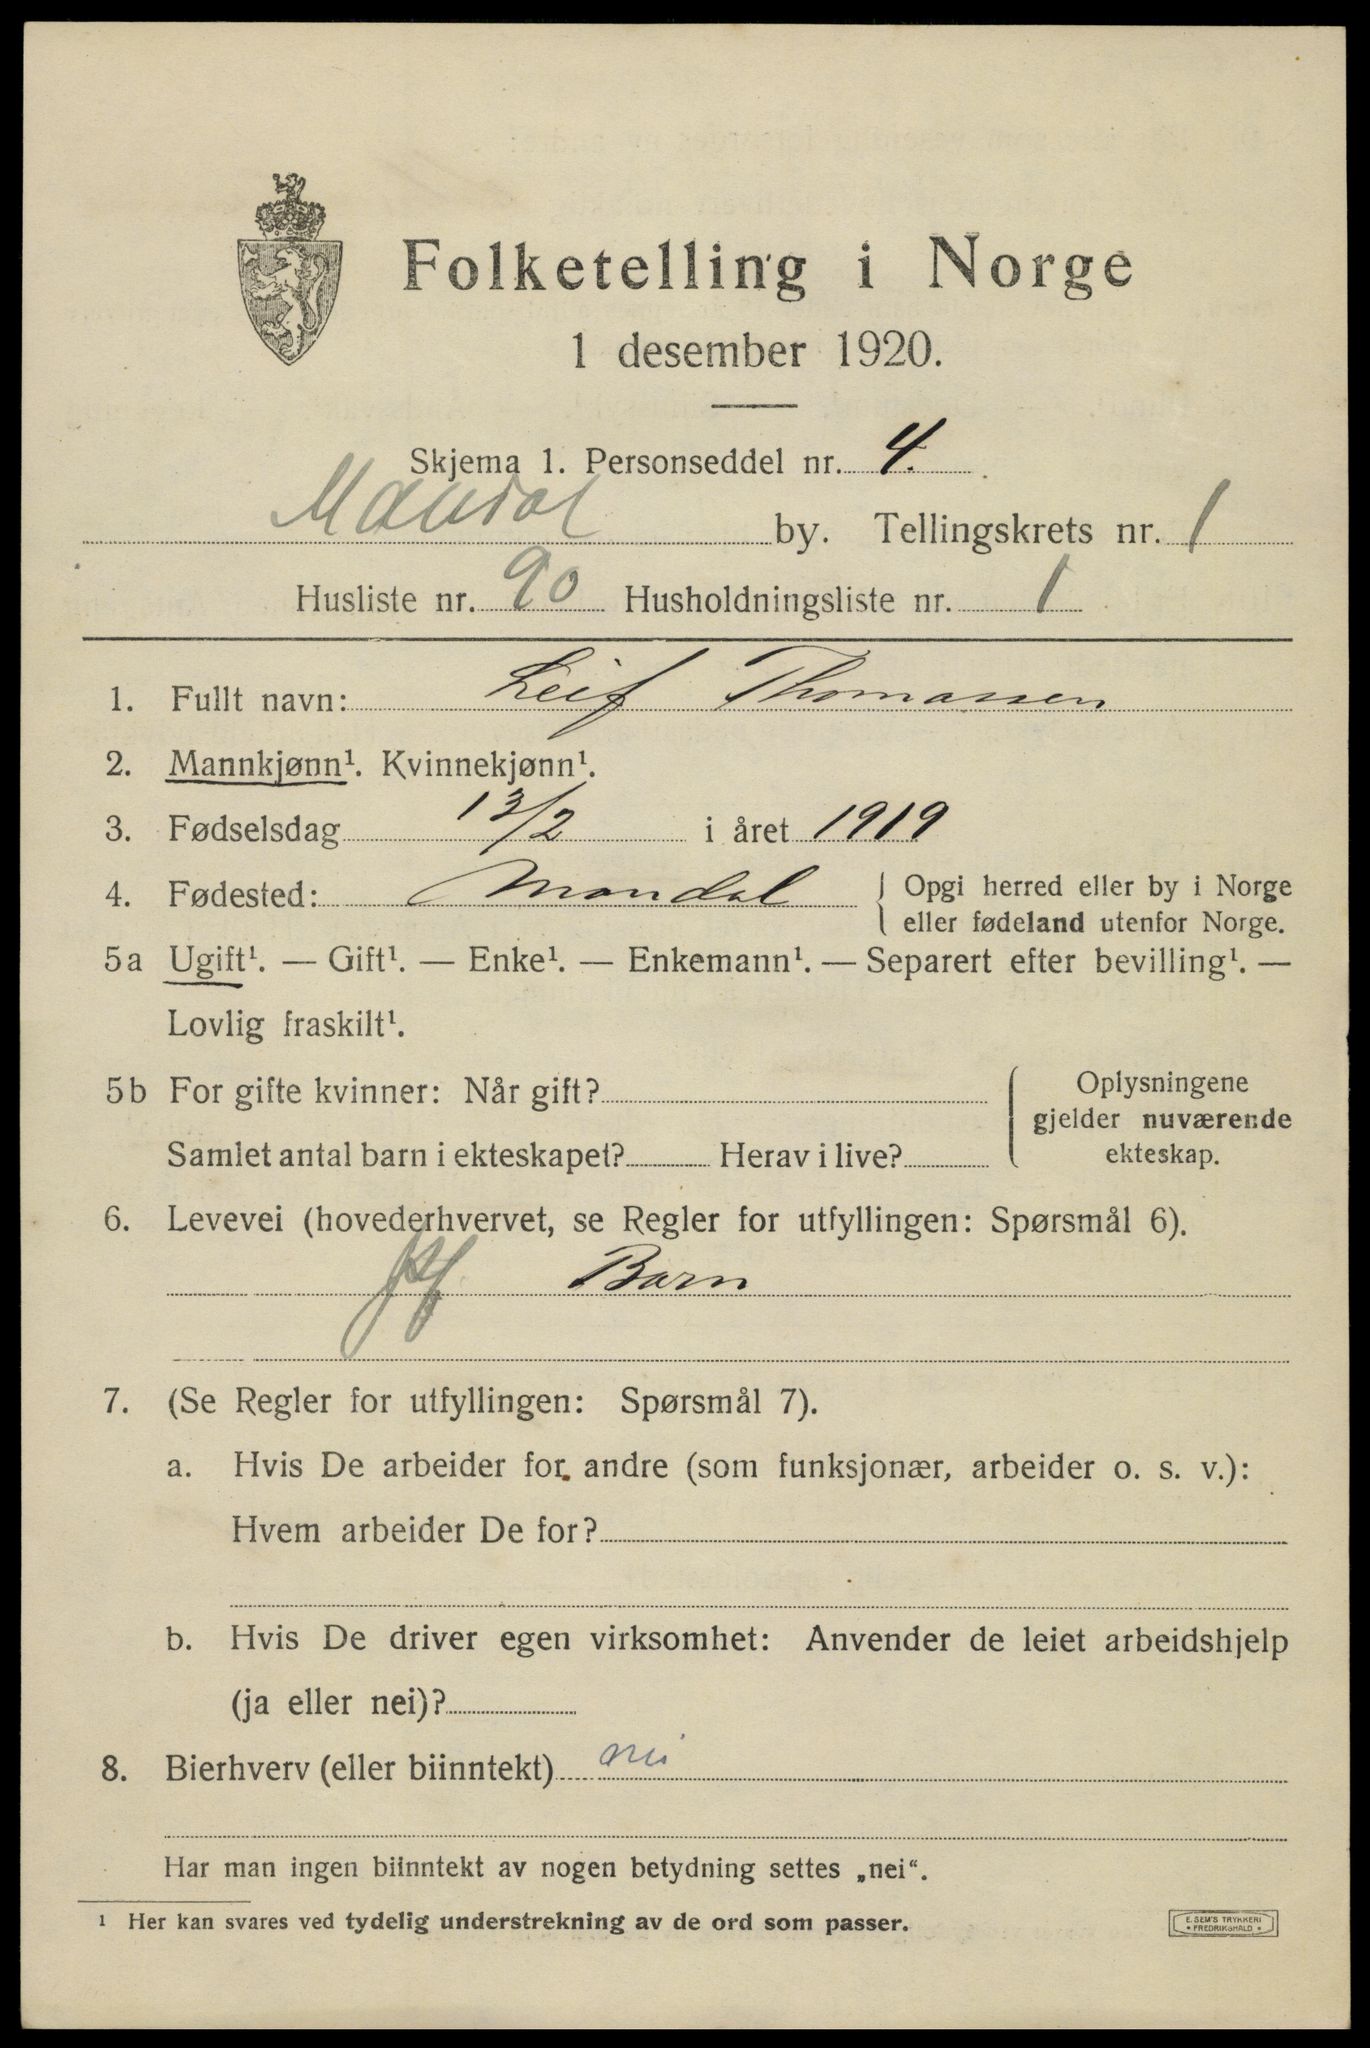 Folketelling i Norge
1 desember 1920.
Skjema 1. Personseddel nr. 4.
Mandal by. Tellingskrets nr. 1
Husliste nr. 90 Husholdningsliste nr. 1
1. Fullt navn: Leif Thomassen
2. Mannkjønn¹. Kvinnekjønn¹.
3. Fødselsdag 13/2 i året 1919
4. Fødested: Mandal { Opgi herred eller by i Norge
eller fødeland utenfor Norge.
5a Ugift¹. — Gift¹. — Enke¹. — Enkemann¹. — Separert efter bevilling¹. —
Lovlig fraskilt¹.
5b For gifte kvinner: Når gift?
Samlet antal barn i ekteskapet? Herav i live?
Oplysningene
gjelder nuværende
ekteskap.
6. Levevei (hovederhvervet, se Regler for utfyllingen: Spørsmål 6).
Barn
7. (Se Regler for utfyllingen: Spørsmål 7).
a. Hvis De arbeider for andre (som funksjonær, arbeider o. s. v.):
Hvem arbeider De for?
b. Hvis De driver egen virksomhet: Anvender de leiet arbeidshjelp
(ja eller nei)?
8. Bierhverv (eller biinntekt) nei
Har man ingen biinntekt av nogen betydning settes „nei“.
¹ Her kan svares ved tydelig understrekning av de ord som passer.
E. SEM'S TRYKKERI
• FREDRIKSHALD •